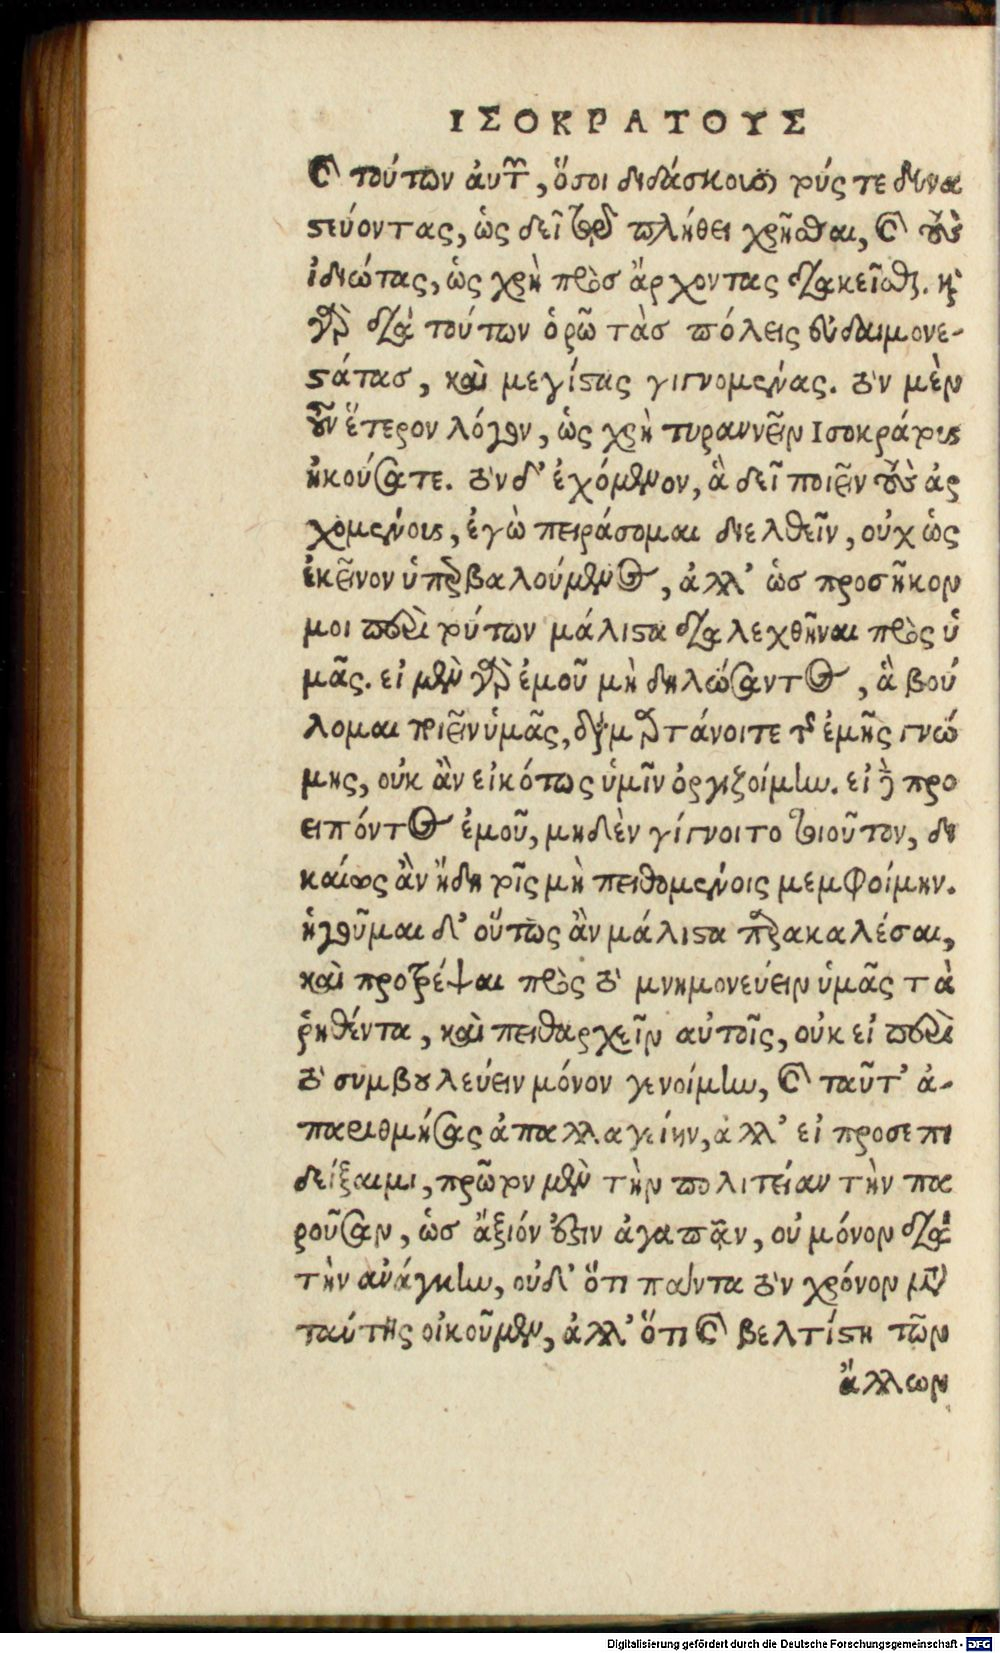 ΙΣΟΚΡΑΤΟΥΣ
καὶ τούτων αὐτῶν, ὅσοι διδάσκουσι τούς τε δυνα
στεύοντας, ὡς δεῖ τῷ πλήθει χρῆσθαι, καὶ τοὺς
ἰδιώτας, ὡς χρὴ πρὸσ ἄρχοντας διακεῖσθαι. καὶ
γὰρ διὰ τούτων ὁρῶ τὰσ πόλεις εὐδαιμονε-
στάτασ, καὶ μεγίστας γιγνομένας. τὸν μὲν
οὖν ἕτερον λόγον, ὡς χρὴ τυραννεῖν Ισοκράτους
ἠκούσατε. τὸν δ' ἐχόμενον, ἃ δεῖ ποιεῖν τοὺς ἀρ
χομένους, ἐγὼ πειράσομαι διελθεῖν, οὐχ ὡς
ἐκεῖνον ὑπερβαλούμενος, ἀλλ' ὡσ προσῆκον
μοι περὶ τούτων μάλιστα διαλεχθῆναι πρὸς ὑ
μᾶς. εἰ μὲν γὰρ ἐμοῦ μὴ δηλώσαντος, ἃ βού
λομαι ποιεῖν ὑμᾶς, διημαρτάνοιτε τῆς ἐμῆς γνώ
μης, οὐκ ἂν εἰκότως ὑμῖν ὀργιζοίμην. εἰ δὲ προ
ειπόντος ἐμοῦ, μηδὲν γίγνοιτο τοιοῦτον, δι
καίως ἂν ἤδη τοῖς μὴ πειθομένοις μεμφοίμην.
ἡγοῦμαι δ' οὕτως ἂν μάλιστα παρακαλέσαι,
καὶ προτρέψαι πρὸς τὸ μνημονεύειν ὑμᾶς τὰ
ῥηθέντα, καὶ πειθαρχεῖν αὐτοῖς, οὐκ εἰ περὶ
τὸ συμβουλεύειν μόνον γενοίμην, καὶ ταῦτ' ἀ-
παριθμήσας ἀπαλλαγείην, ἀλλ' εἰ προσεπι
δείξαιμι, πρῶτον μὲν τὴν πολιτείαν τὴν πα
ροῦσαν, ὡσ ἄξιόν ἐστιν ἀγαπᾶν, οὐ μόνον διὰ
τὴν ἀνάγκην, οὐδ' ὅτι πάντα τὸν χρόνον μετὰ
ταύτης οἰκοῦμεν, ἀλλ' ὅτι καὶ βελτίστη τῶν
ἄλλων
Digitalisierung gefördert durch die Deutsche Forschungsgemeinschaft - DFG